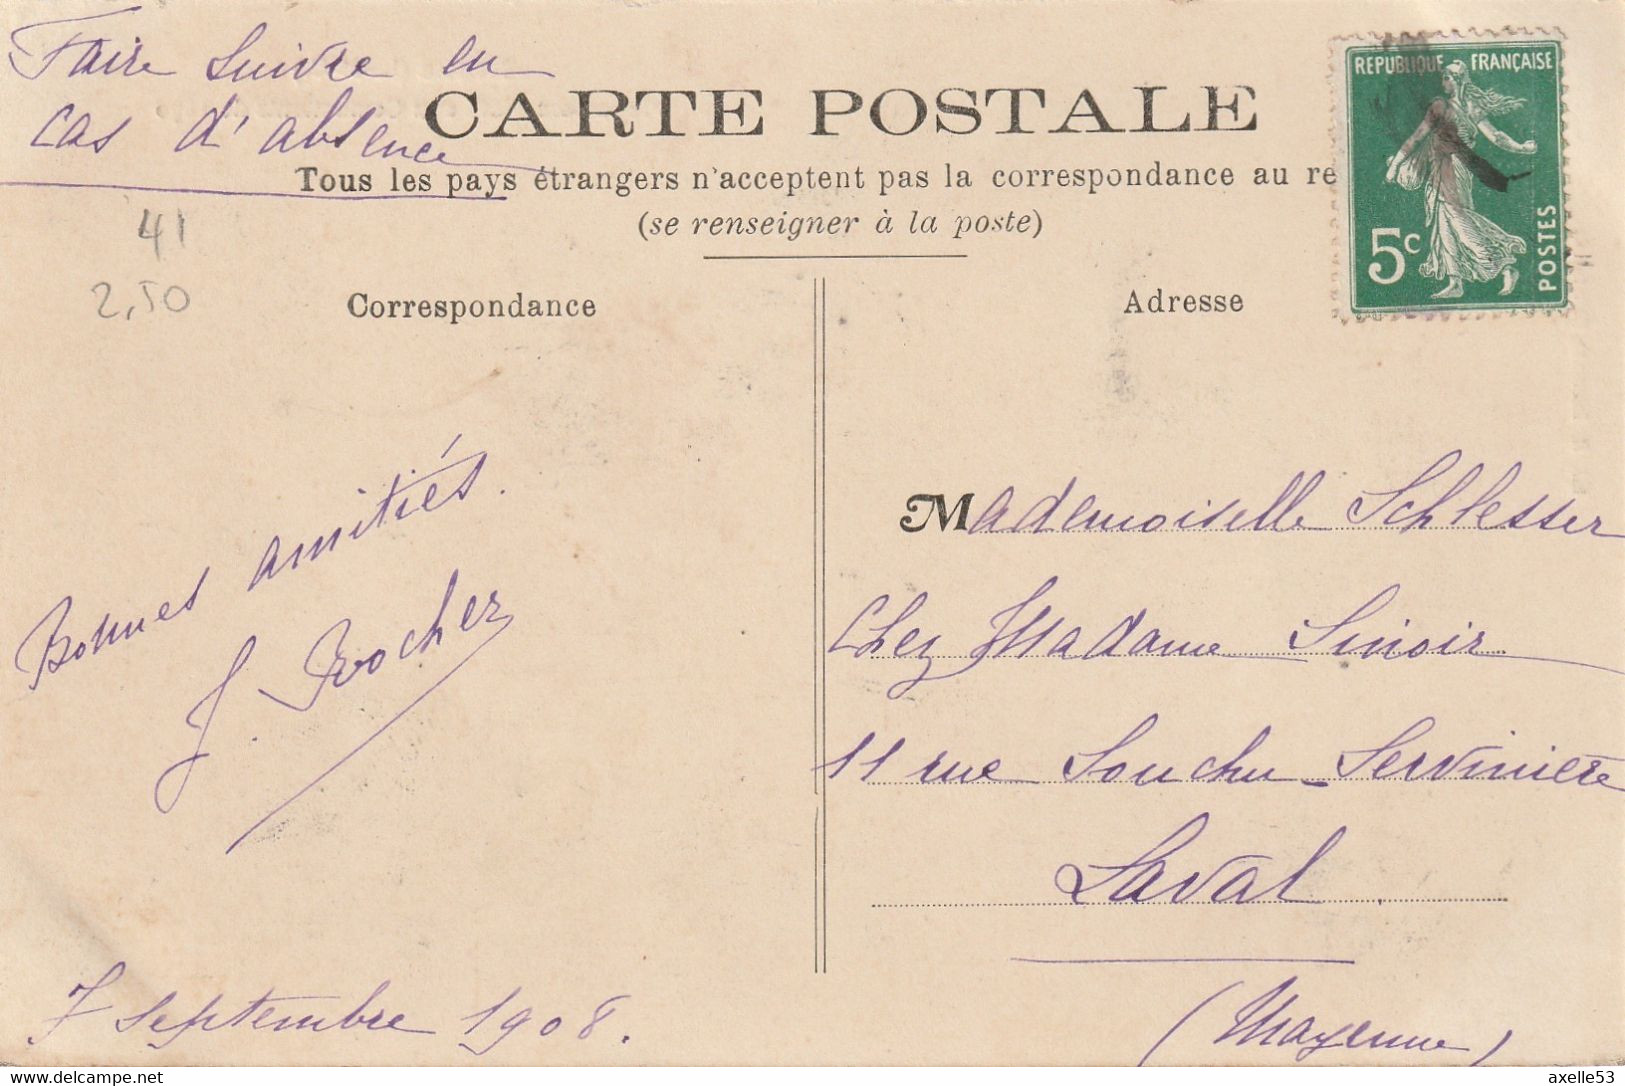 Faire suivre en
cas d'absence
CARTE POSTALE
Tous les pays étrangers n'acceptent pas la correspondance au re
(se renseigner à la poste)
REPUBLIQUE FRANÇAISE
5c
POSTES
41
2,50
Correspondance
Bonnes amitiés.
J. Rocher
7 septembre 1908.
Adresse
Mademoiselle Schlesser
Chez Madame Sinoir
11 rue Souchu-Servinière
Laval
(Mayenne)
www.delcampe.net
axelle53